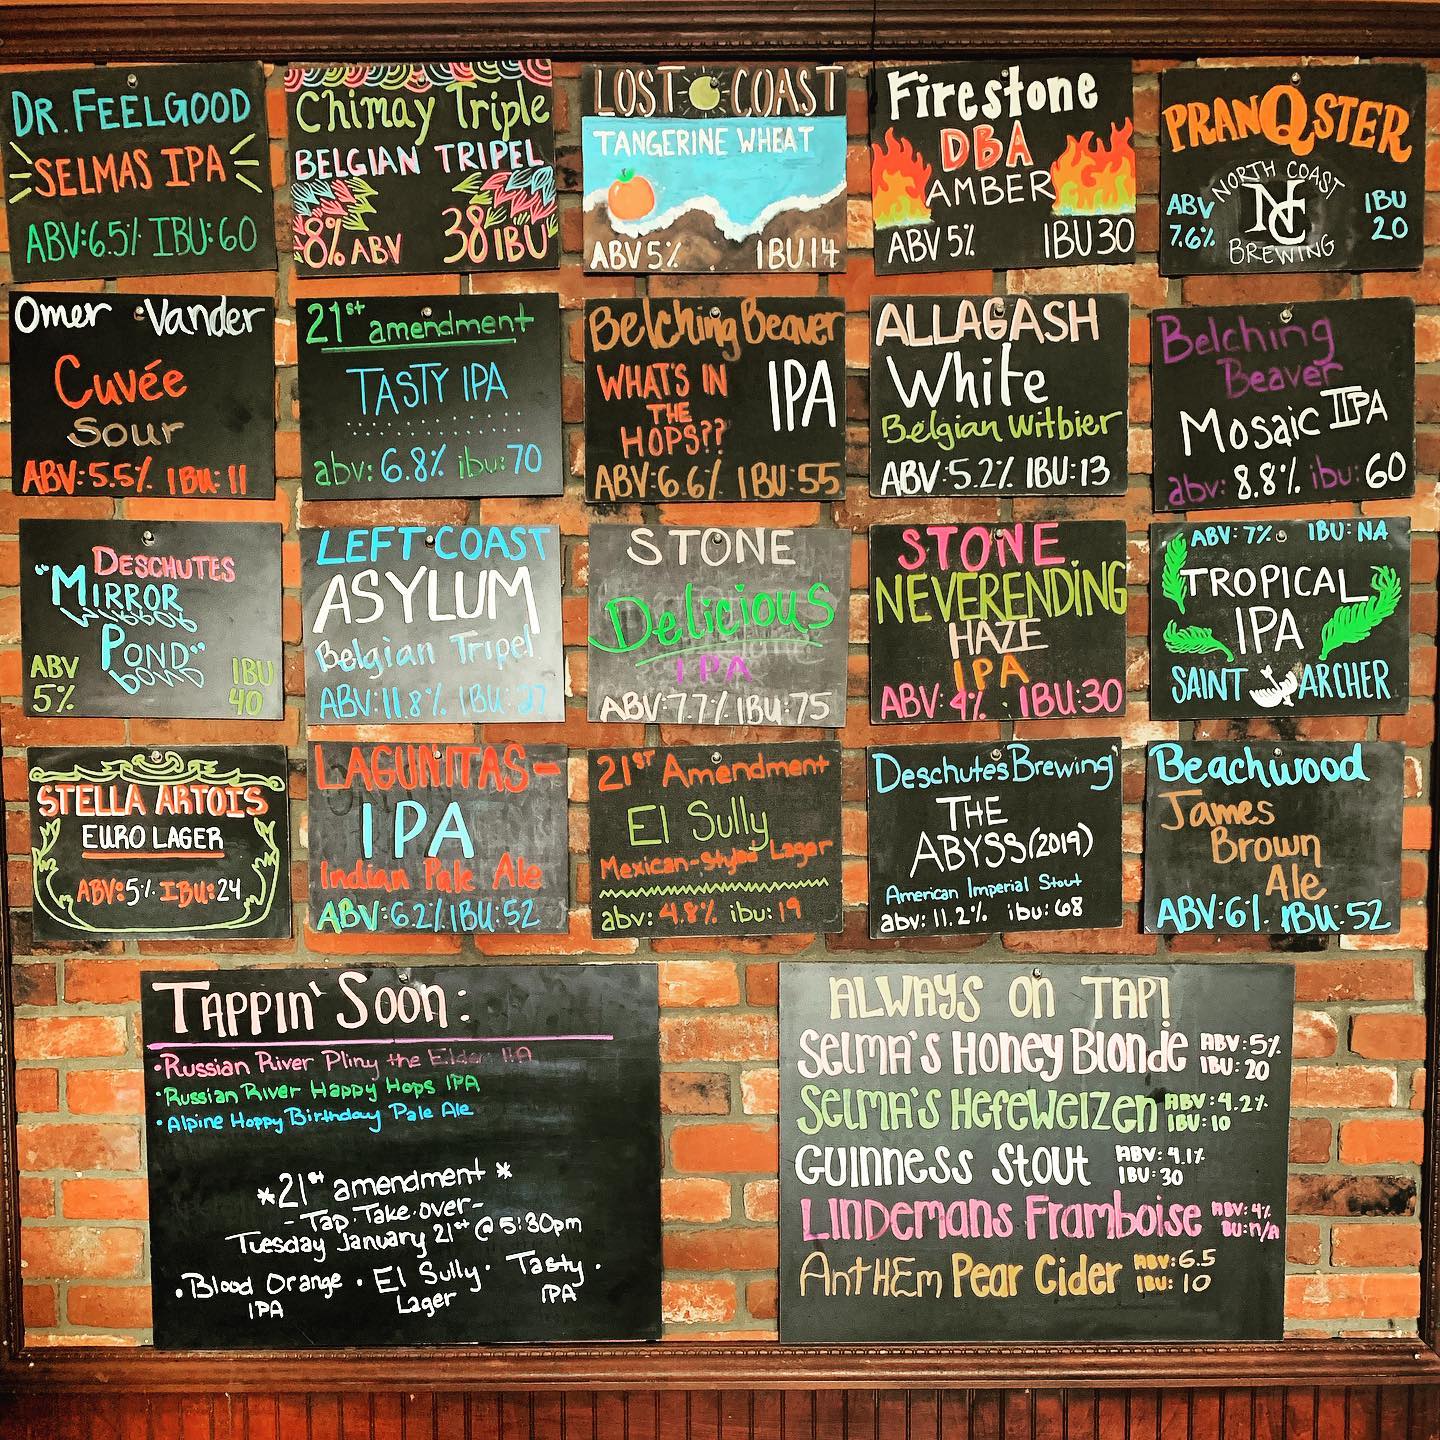 DR. FEELGOOD
SELMAS IPA
ABV:6.5% IBU:60
Chimay Triple
BELGIAN TRIPEL
8% ABV 38 IBU
LOST COAST
TANGERINE WHEAT
ABV 5% IBU 14
Firestone
DBA
AMBER
ABV 5% IBU 30
PRANQSTER
NORTH COAST
NC
BREWING
ABV
7.6%
IBU
20
Omer Vander
Cuvée
Sour
ABV:5.5% IBU:11
21st amendment
TASTY IPA
abv: 6.8% ibu: 70
Belching Beaver
WHAT'S IN
THE
HOPS??
IPA
ABV:6.6% IBU:55
ALLAGASH
White
Belgian Witbier
ABV:5.2% IBU:13
Belching
Beaver
Mosaic IIPA
abv: 8.8% ibu: 60
DESCHUTES
"MIRROR
POND"
ABV
5%
IBU
40
LEFT COAST
ASYLUM
Belgian Tripel
ABV:11.8% IBU:27
STONE
Delicious
IPA
ABV:7.7% IBU:75
STONE
NEVERENDING
HAZE
IPA
ABV:4% IBU:30
ABV: 7% IBU: NA
TROPICAL
IPA
SAINT ARCHER
STELLA ARTOIS
EURO LAGER
ABV:5% IBU:24
LAGUNITAS-
IPA
Indian Pale Ale
ABV:6.2% IBU:52
21ST Amendment
El Sully
Mexican-Styled Lager
abv: 4.8% ibu: 19
Deschutes Brewing
THE
ABYSS (2019)
American Imperial Stout
abv: 11.2% ibu: 68
Beachwood
James
Brown
Ale
ABV:6% IBU:52
TAPPIN' SOON:
•Russian River Pliny the Elder IIA
•Russian River Happy Hops IPA
•Alpine Hoppy Birthday Pale Ale
*21st amendment*
-Tap·Take·over-
Tuesday January 21st @ 5:30pm
•Blood Orange • El Sully • Tasty •
IPA Lager IPA
ALWAYS ON TAP!
SELMA'S HONEY BLONDE ABV:5%
IBU: 20
SELMA'S HEFEWEIZEN ABV:4.2%
IBU:10
GUINNESS STOUT ABV:4.1%
IBU:30
LINDEMANS FRAMBOISE ABV:4%
IBU:N/A
ANTHEM PEAR CIDER ABV:6.5
IBU: 10